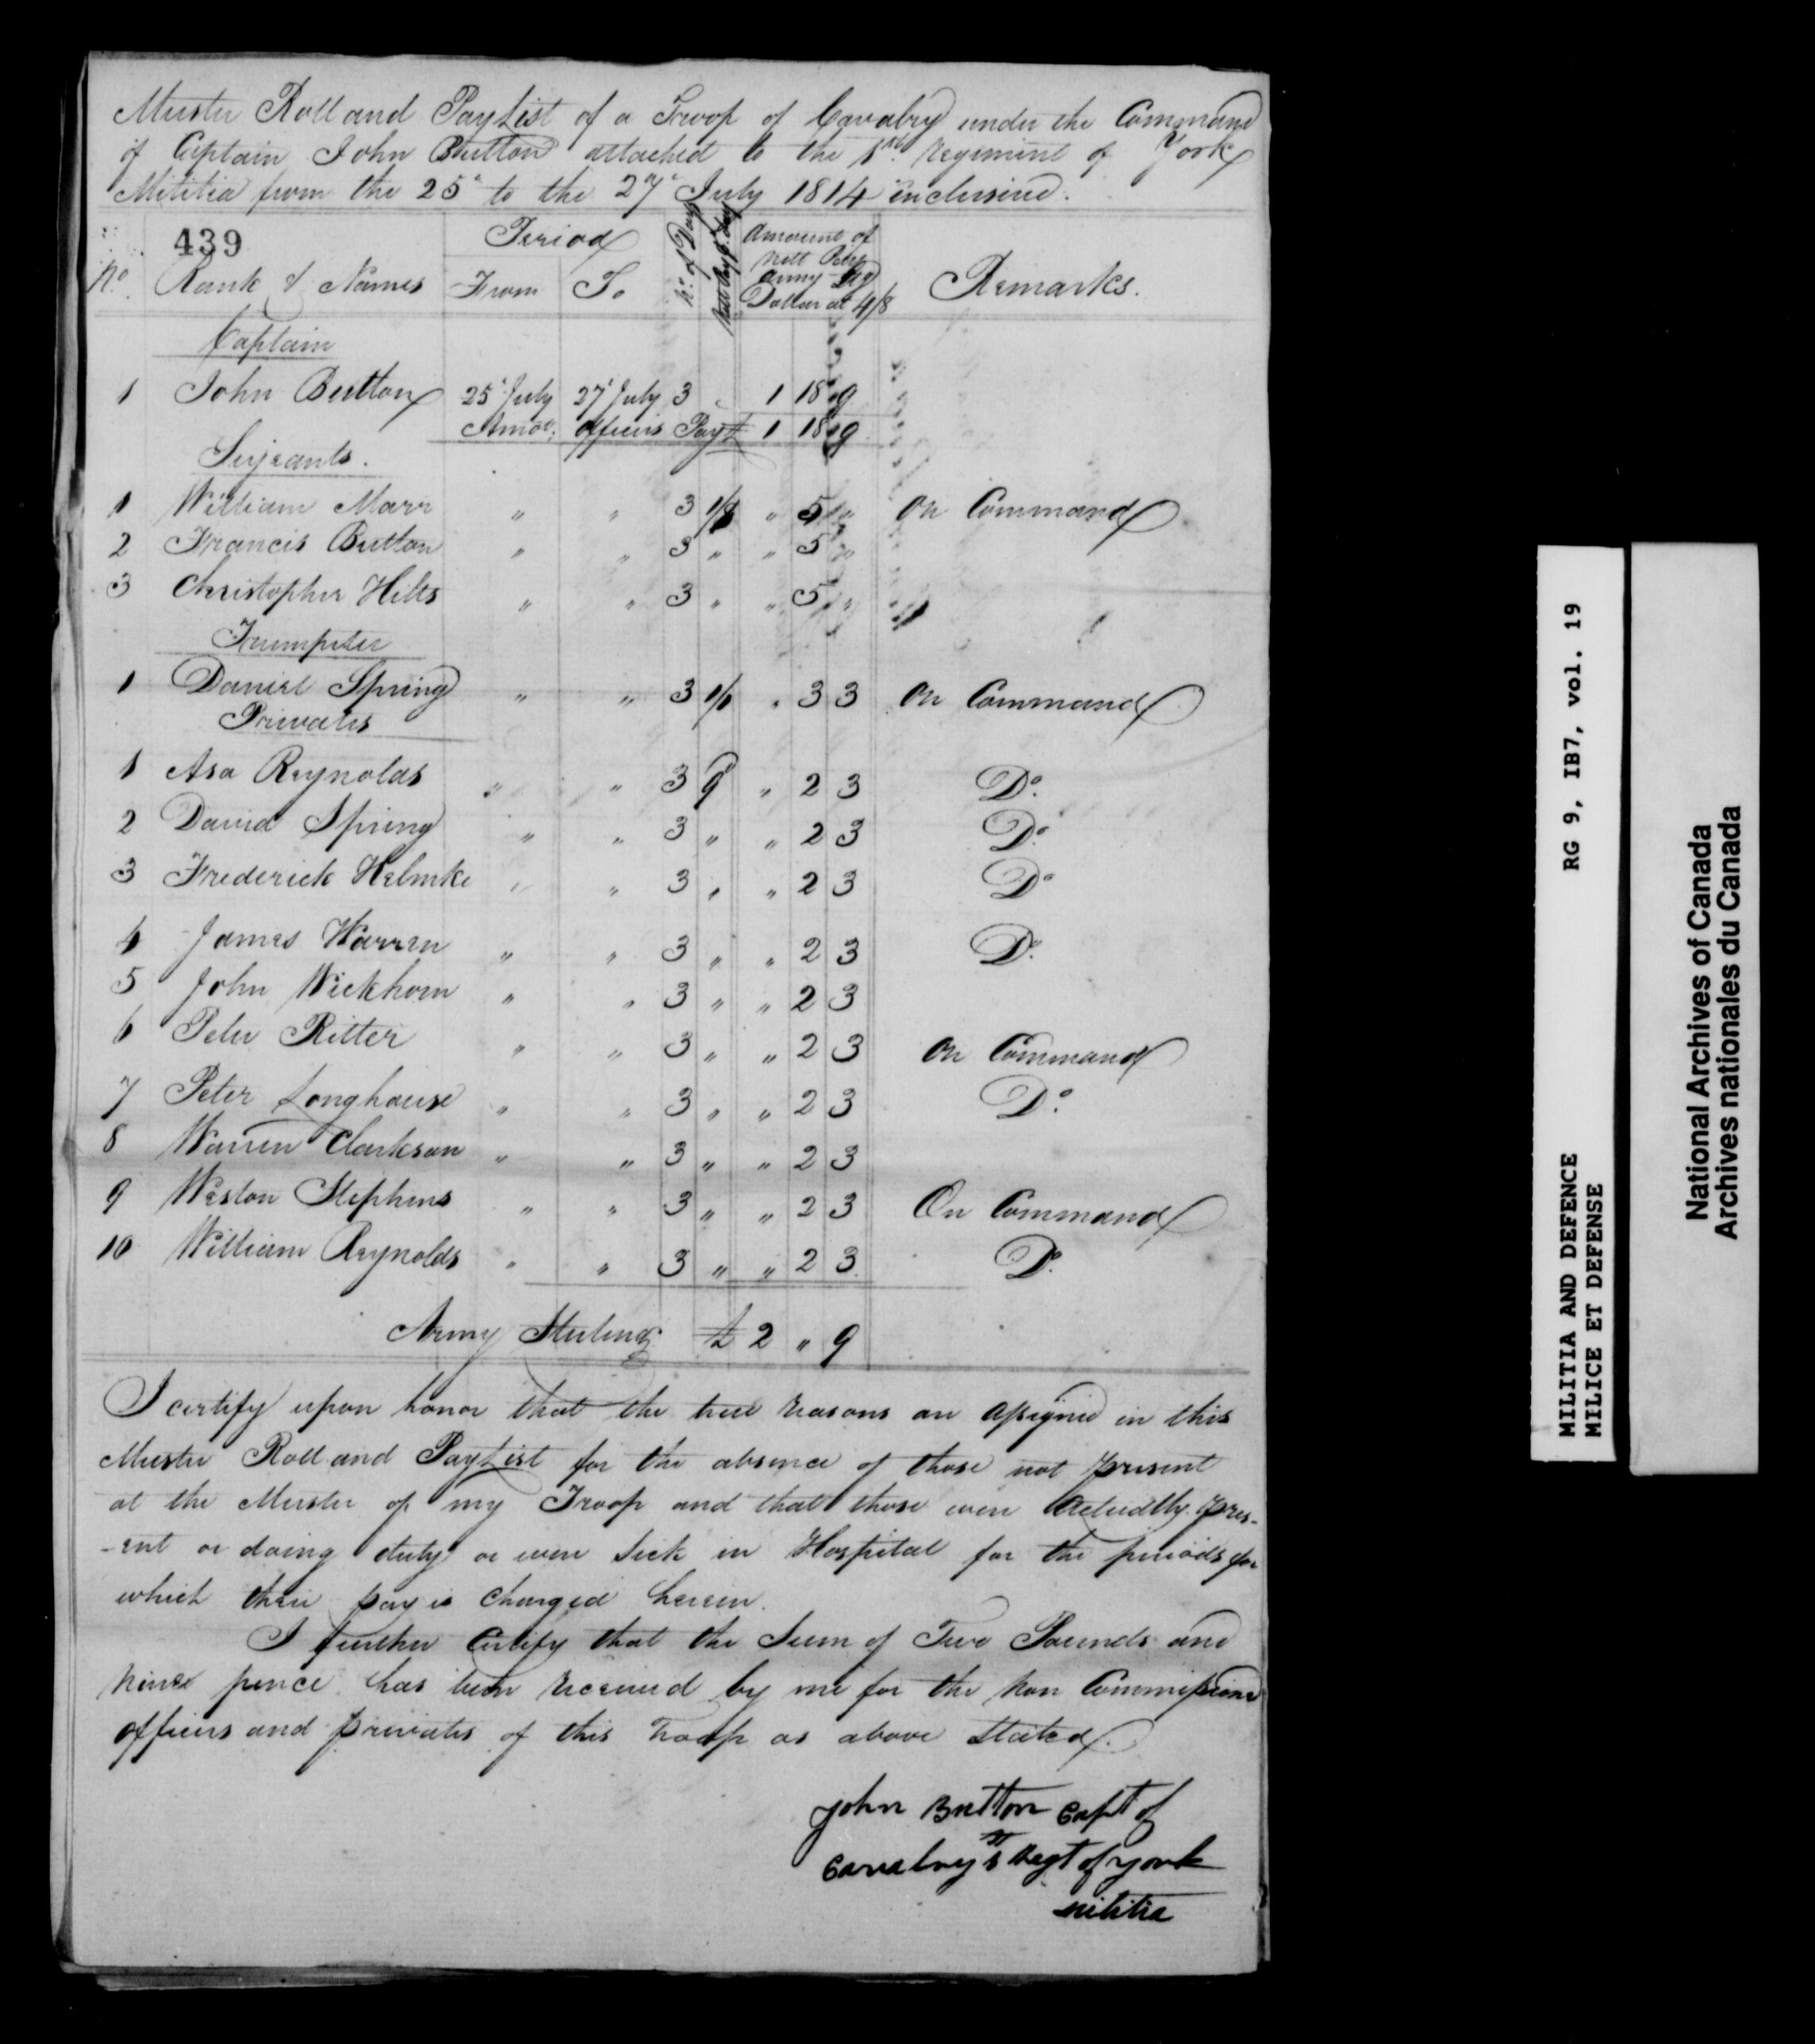 Muster Roll and Pay List of a Troop of Cavalry under the Command
of Captain John Button attached to the 1st Regiment of York
Militia from the 25th to the 27th July 1814 inclusive.
439
No. Rank & Names Period From To No. of Days Nett Pay pr. day Amount of Nett Pay Army Stg Dollar at 4/8 Remarks.
Captain
1 John Button 25th July 27th July 3 1 18 9
Amot. officers Pay £ 1 18 9
Serjeants.
1 William Marr " " 3 1/8 " 5 " on Command
2 Francis Button " " 3 " " 5 "
3 Christopher Hilts " " 3 " " 5 "
Trumpeter
1 Daniel Spring " " 3 1/1 " 3 3 on Command
Privates
1 Asa Reynolds " " 3 9d " 2 3 Do.
2 David Spring " " 3 " " 2 3 Do.
3 Frederick Helmke " " 3 " " 2 3 Do
4 James Warren " " 3 " " 2 3 Do.
5 John Wickhom " " 3 " " 2 3
6 Peter Ritter " " 3 " " 2 3 on Command
7 Peter Longhouse " " 3 " " 2 3 Do.
8 Warren Clarkson " " 3 " " 2 3
9 Weston Stephens " " 3 " " 2 3 On Command
10 William Reynolds " " 3 " " 2 3 Do.
Army Sterling £ 2 " 9
I certify upon honor that the true reasons are assigned in this
Muster Roll and Pay List for the absence of those not present
at the Muster of my Troop and that those were actually pres-
-ent or doing duty or were sick in Hospital for the periods for
which their pay is charged herein.
I further Certify that the Sum of Two Pounds and
nine pence has been received by me for the non Commissioned
officers and privates of this Troop as above Stated.
John Button Capt of
Cavalry 1st Regt of York
militia
MILITIA AND DEFENCE RG 9, IB7, vol. 19
MILICE ET DEFENSE
National Archives of Canada
Archives nationales du Canada